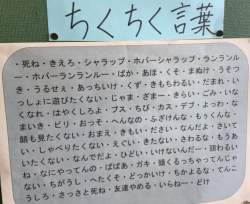 ちくちく言葉
・死ね・きえろ・シャラップ・ホバーシャラップ・ランランルー
・ホバーランランルー・ばか・あほ・くそ・まぬけ・うそつ
き・うるせぇ・あっちいけ・くず・きもちわるい・だまれ・
っしょに遊びたくない・じゃま・ざまー・きらい・ごみ・いな
くなれ・はやくしろよ・ブス・ちび・カス・デブ・よわっ・な
まいき・ビリ・おっそ・へんなの・ふざけんな・もぅくんな・
顔も見たくない・おまえ・きもい・ださい・なんだよ・さいて
い・しゃべりたくない・えぐい・きたない・さわるな・もうあ
いたくない・なんでだよ・ひどい・いけないんだー・頭わるい
ね・なにやってんの・ばばあ・ガキ・頭くるっちゃってんじゃ
ない・ちがうし・へたくそ・どっかいけ・ちかよるな・てんこ
うしろ・さっさと死ね・友達やめる・いらねー・どけ